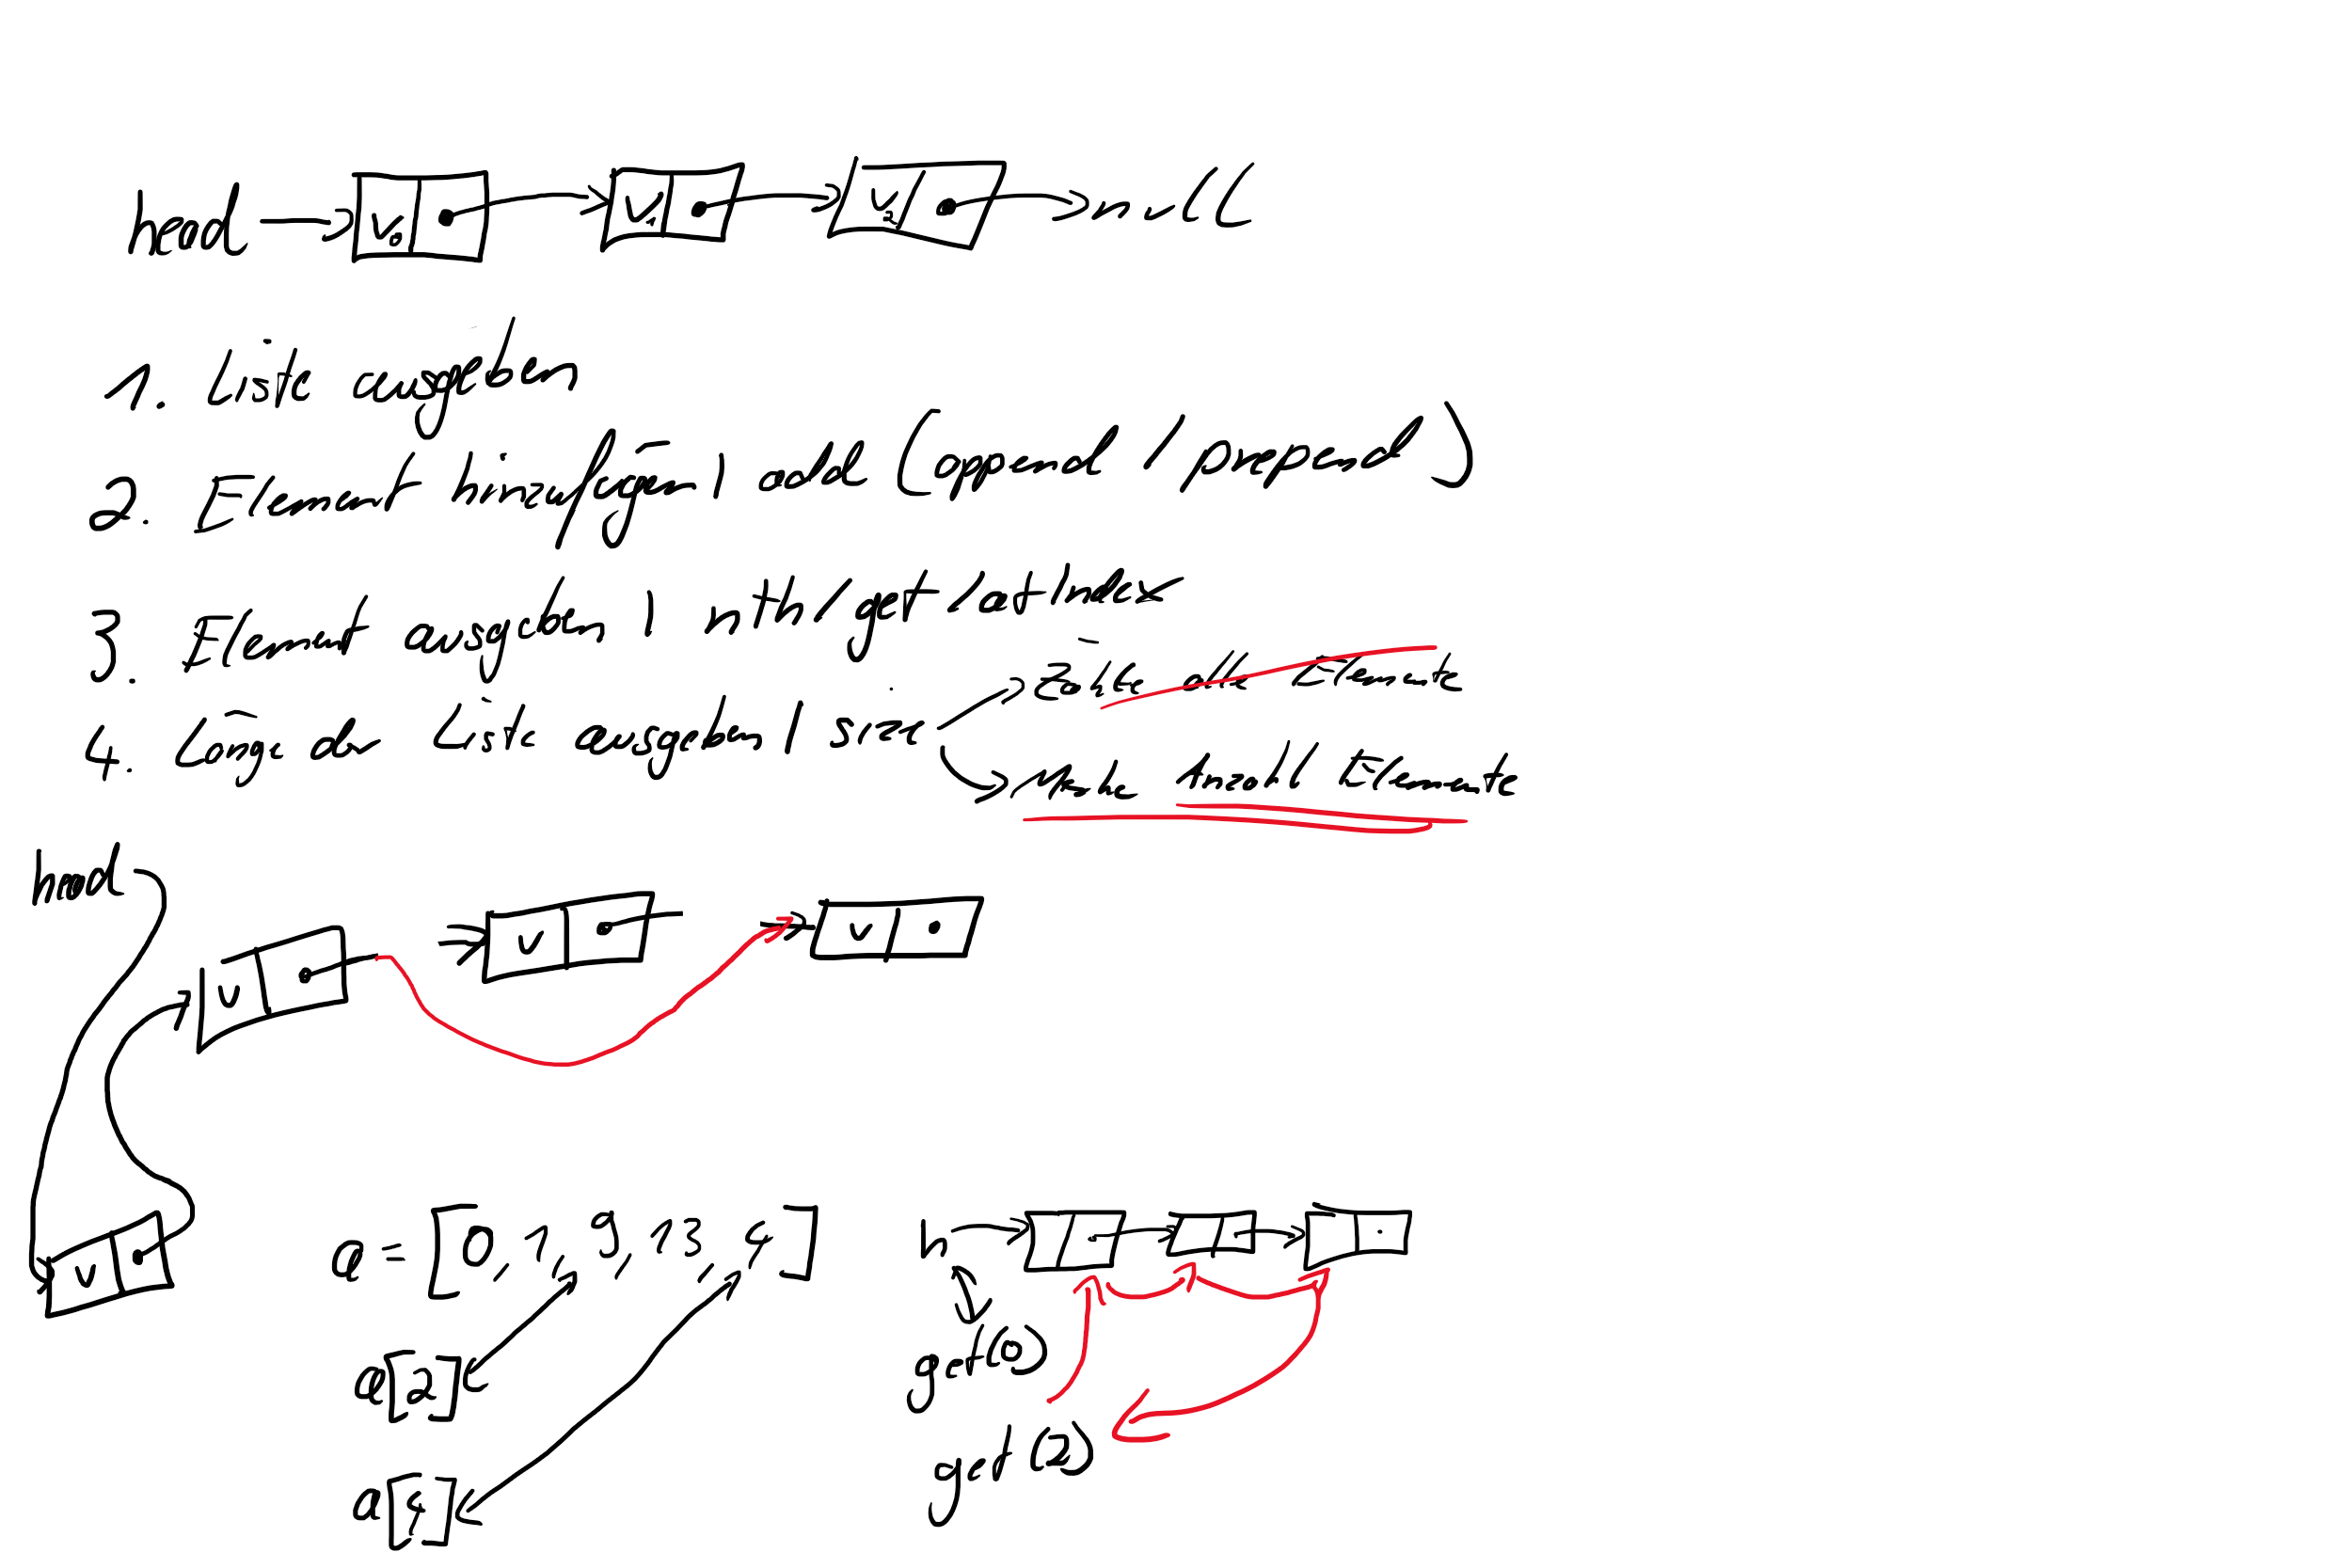 head v₀ v₁ v₂ null
1. Liste ausgeben
2. Element hinzufügen | add (append / prepend)
3. Element ausgeben | nth / get / at Index
4. Länge der Liste ausgeben | size
Zähle alle Elemente
Anzahl Elemente
head
v v v
v
a = [0, 1, 9, 1, 3, 4, ]
h
a[2]
get(0)
get(2)